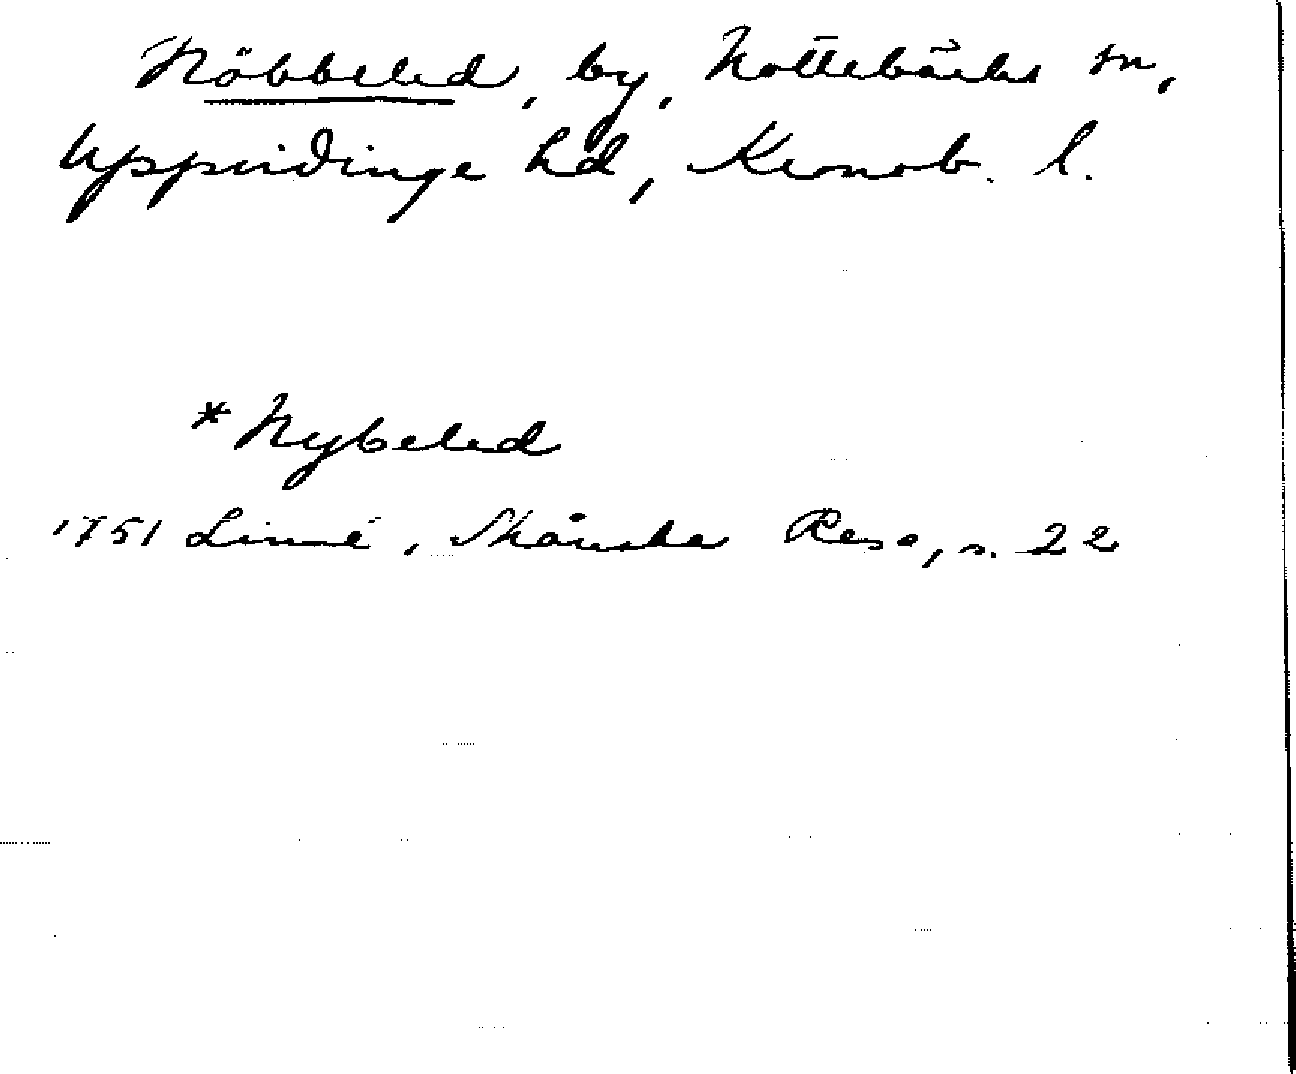 Nöbbeled, by, Nottebäcks sn,
Uppvidinge hd, Kronob. l.
* Nybeled
1751 Linné, Skånska Resa, s. 22